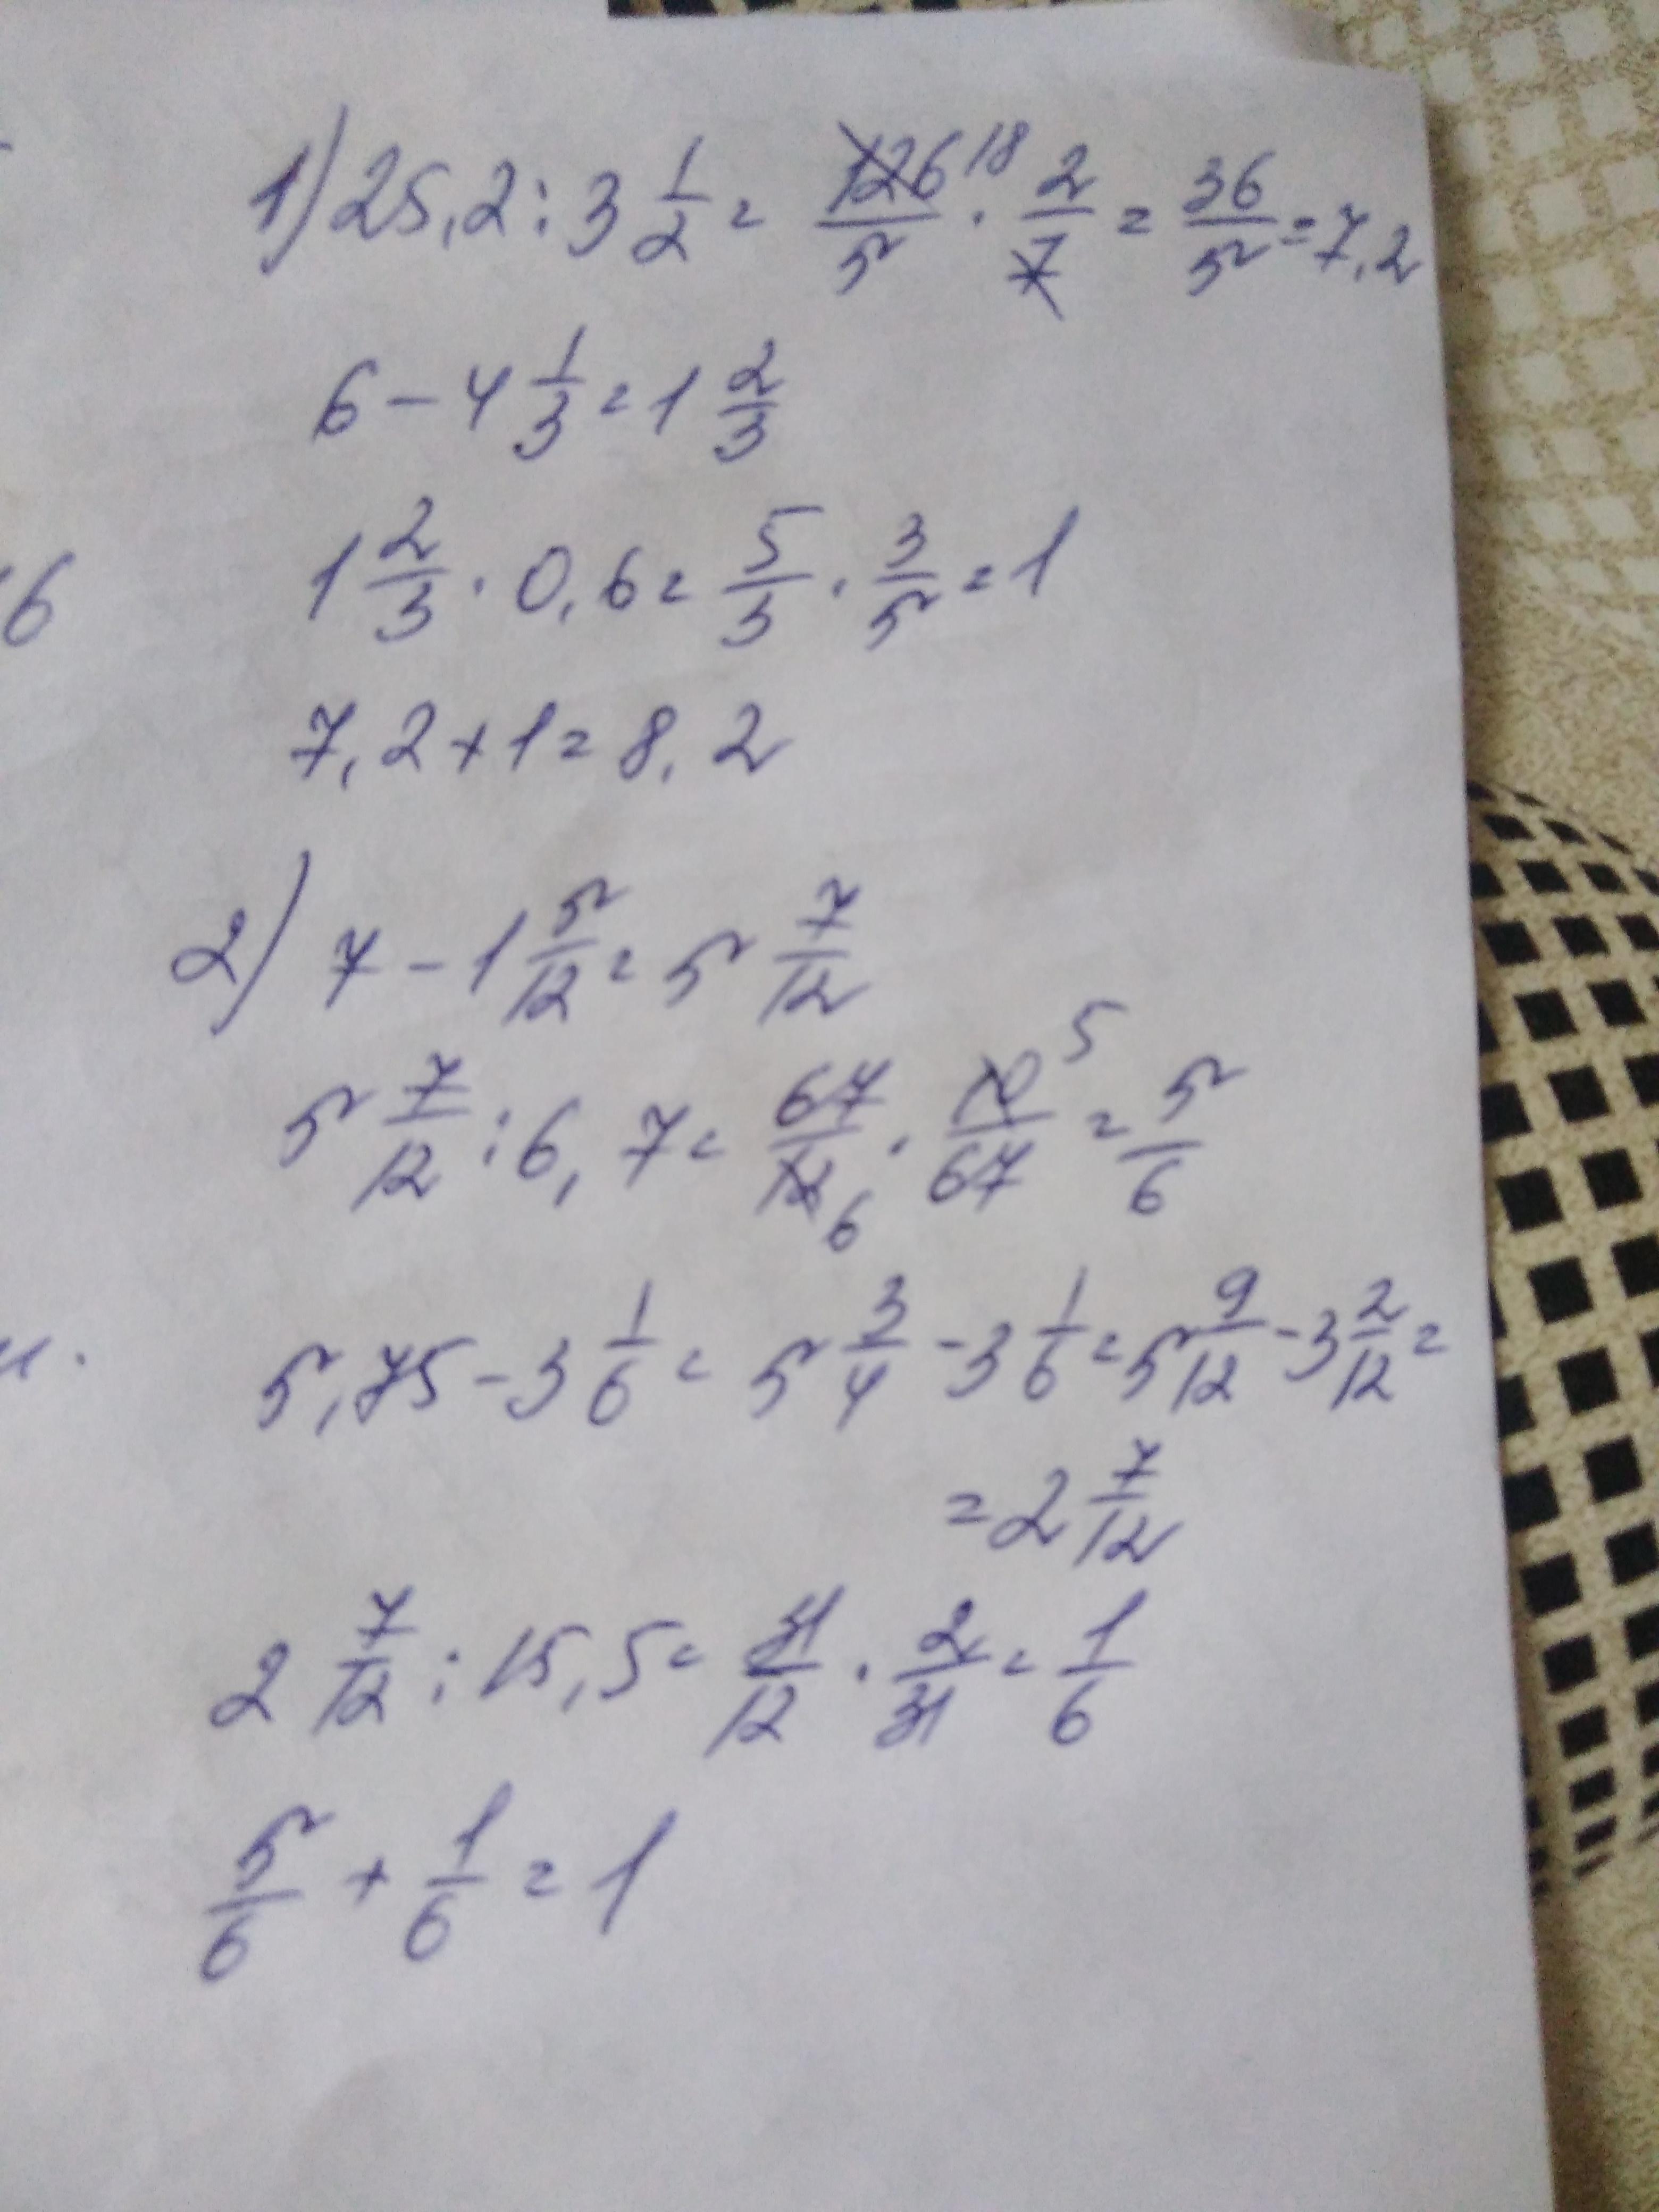 1) 25,2 : 3 1/2 = 126/5 18 · 2/7 = 36/5 = 7,2
6 - 4 1/3 = 1 2/3
1 2/3 · 0,6 = 5/3 · 3/5 = 1
6
7,2 + 1 = 8,2
2) 7 - 1 5/12 = 5 7/12
5 7/12 : 6,7 = 67/12 6 · 10/67 5 = 5/6
5,75 - 3 1/6 = 5 3/4 - 3 1/6 = 5 9/12 - 3 2/12 =
= 2 7/12
2 7/12 : 15,5 = 31/12 · 2/31 = 1/6
5/6 + 1/6 = 1